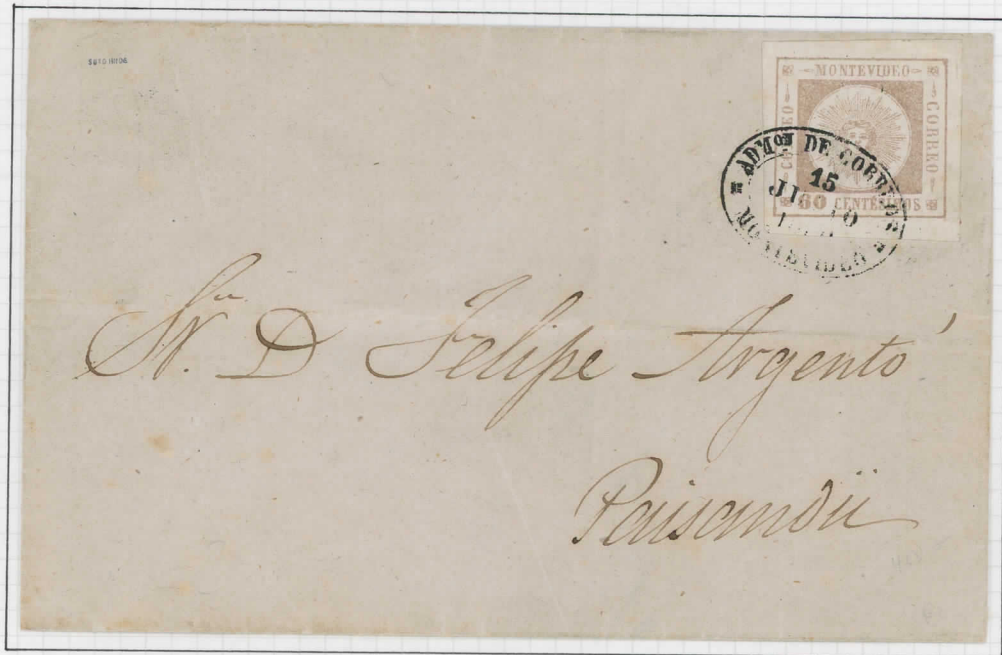 MONTEVIDEO
CORREO
CORREO
60 CENTESIMOS
ADMON DE CORREOS
15
MONTEVIDEO
Sr. D Felipe Argentó
Paisandú